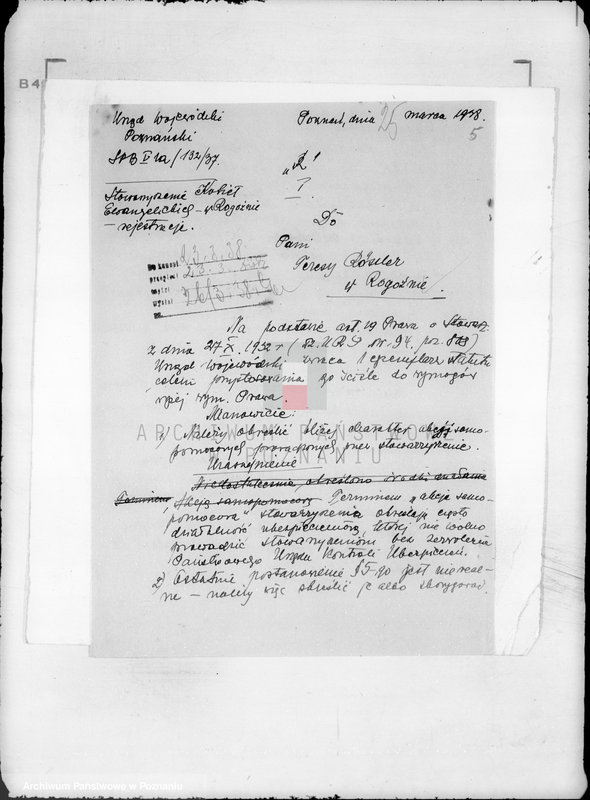 B4
Urząd Wojewódzki
Poznański
SPB IV 1a/132/37.
Poznań, dnia 25 marca 1938.
5
„R"
I
Stowarzyszenie Kobiet
Ewangelickich w Rogoźnie
– rejestracja.
Do
Pani
Teresy Rösler
w Rogoźnie.
22.3.38
23.3.
26/3.38
Na podstawie art. 19 Prawa o Stowarz.
z dnia 27.X.1932 r. (Dz.U.R.P. nr. 94. poz. 808)
Urząd Wojewódzki zwraca 1 egzemplarz statutu
celem przystosowania go ściśle do wymogów
wyżej wym. Prawa.
Mianowicie:
1) Należy określić bliżej charakter akcji samo-
pomocowych prowadzonych przez stowarzyszenie.
Uzasadnienie
określono środki działania
Akcja samopomocowa Terminem „akcja samo-
pomocowa" stowarzyszenia określają często
działalność ubezpieczeniową, której nie wolno
prowadzić stowarzyszeniom bez zezwolenia
Państwowego Urzędu Kontroli Ubezpieczeń.
2) Ostatnie postanowienie § 5-go jest niereal-
ne – należy więc skreślić je albo
ARCHIWUM PAŃSTWOWE
W POZNANIU
Archiwum Państwowe w Poznaniu